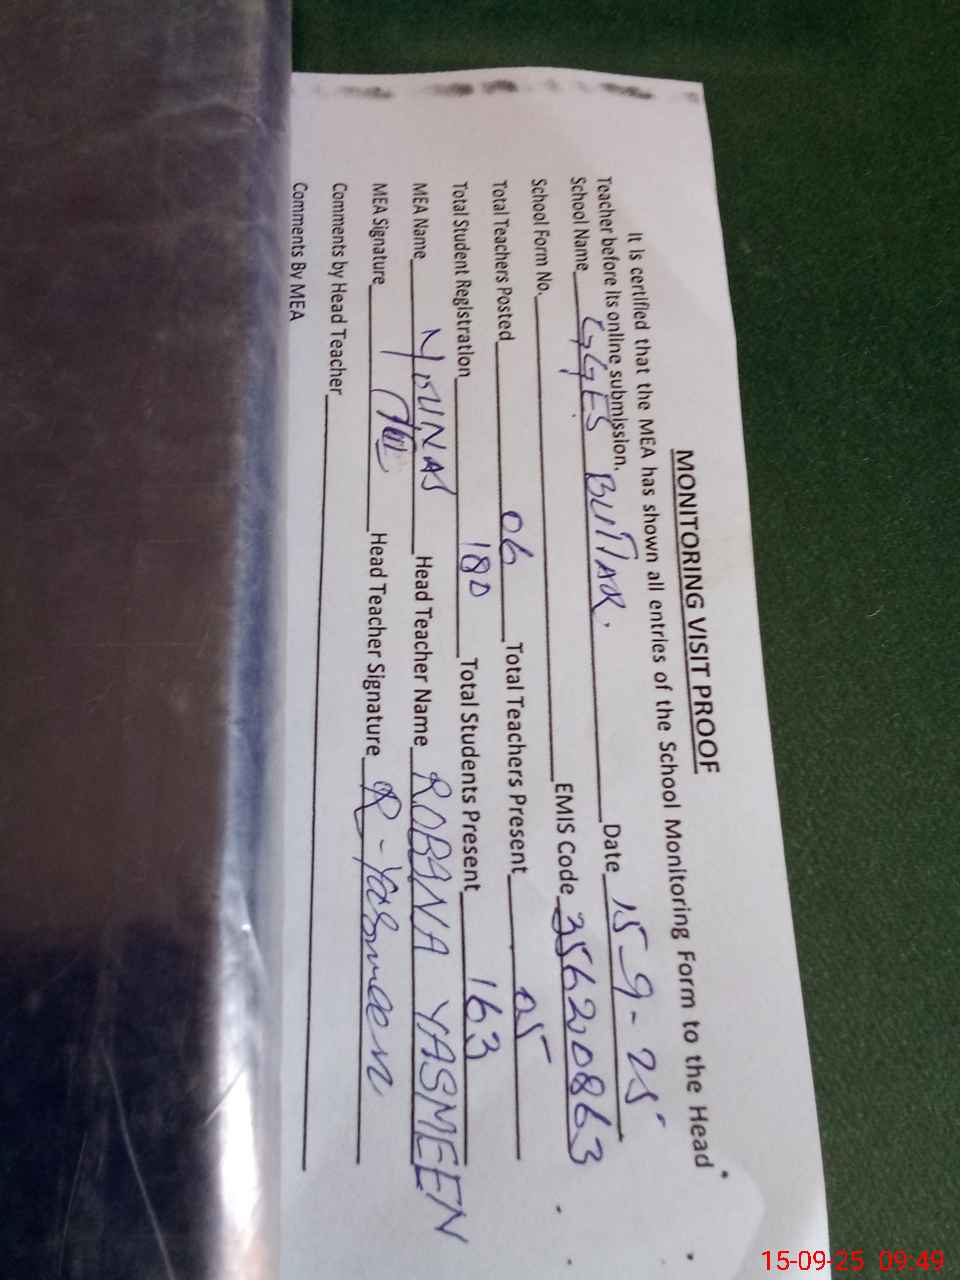 MONITORING VISIT PROOF
It is certified that the MEA has shown all entries of the School Monitoring Form to the Head
Teacher before its online submission.
School Name GGES BUTTAR. Date 15-9-25
School Form No. EMIS Code 35620863
Total Teachers Posted 06 Total Teachers Present 05
Total Student Registration 180 Total Students Present 163
MEA Name YOUNAS Head Teacher Name ROBANA YASMEEN
MEA Signature Head Teacher Signature R-Yasmeen
Comments by Head Teacher
Comments By MEA
15-09-25 09:49